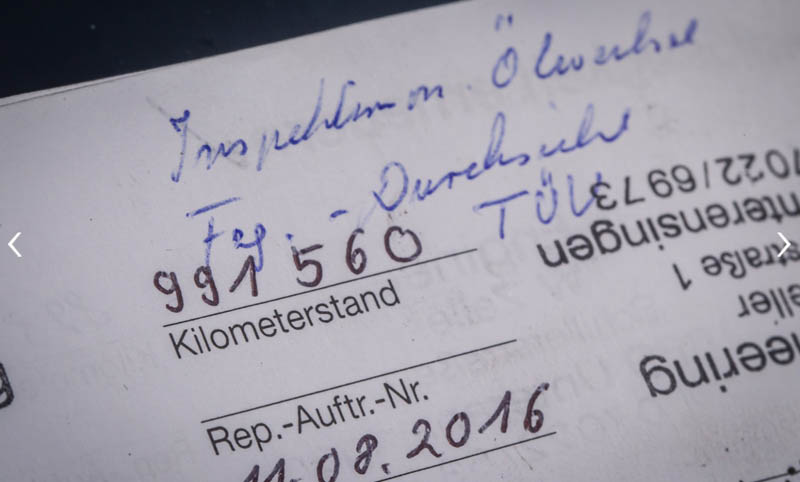 Inspektion. Ölwechsel
Fzg. - Durchsicht
TÜV
991 560
Kilometerstand
Rep.-Auftr.-Nr.
11.08.2016
7022/6973
nterensingen
straße 1
eller
neering